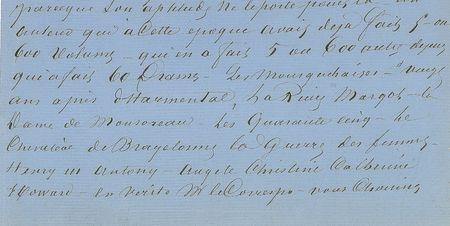 parceque son aptitude ne le porte pour la
auteur qui a cette epoque avait deja fait 5 ou
600 volumes - qui en a fait 5 ou 600 autres depuis
qui a fait 60 Drames - Les Mousquetaires - vingt
ans après d'Harmental, La Reine Margot - la
Dame de Monsoreau - Les Quarante cinq - Le
Chevalier de Bragelonne la Guerre des femmes -
Henry III Antony - Angele Christine Catherine
Howard - en verité M. le Corresp - vous